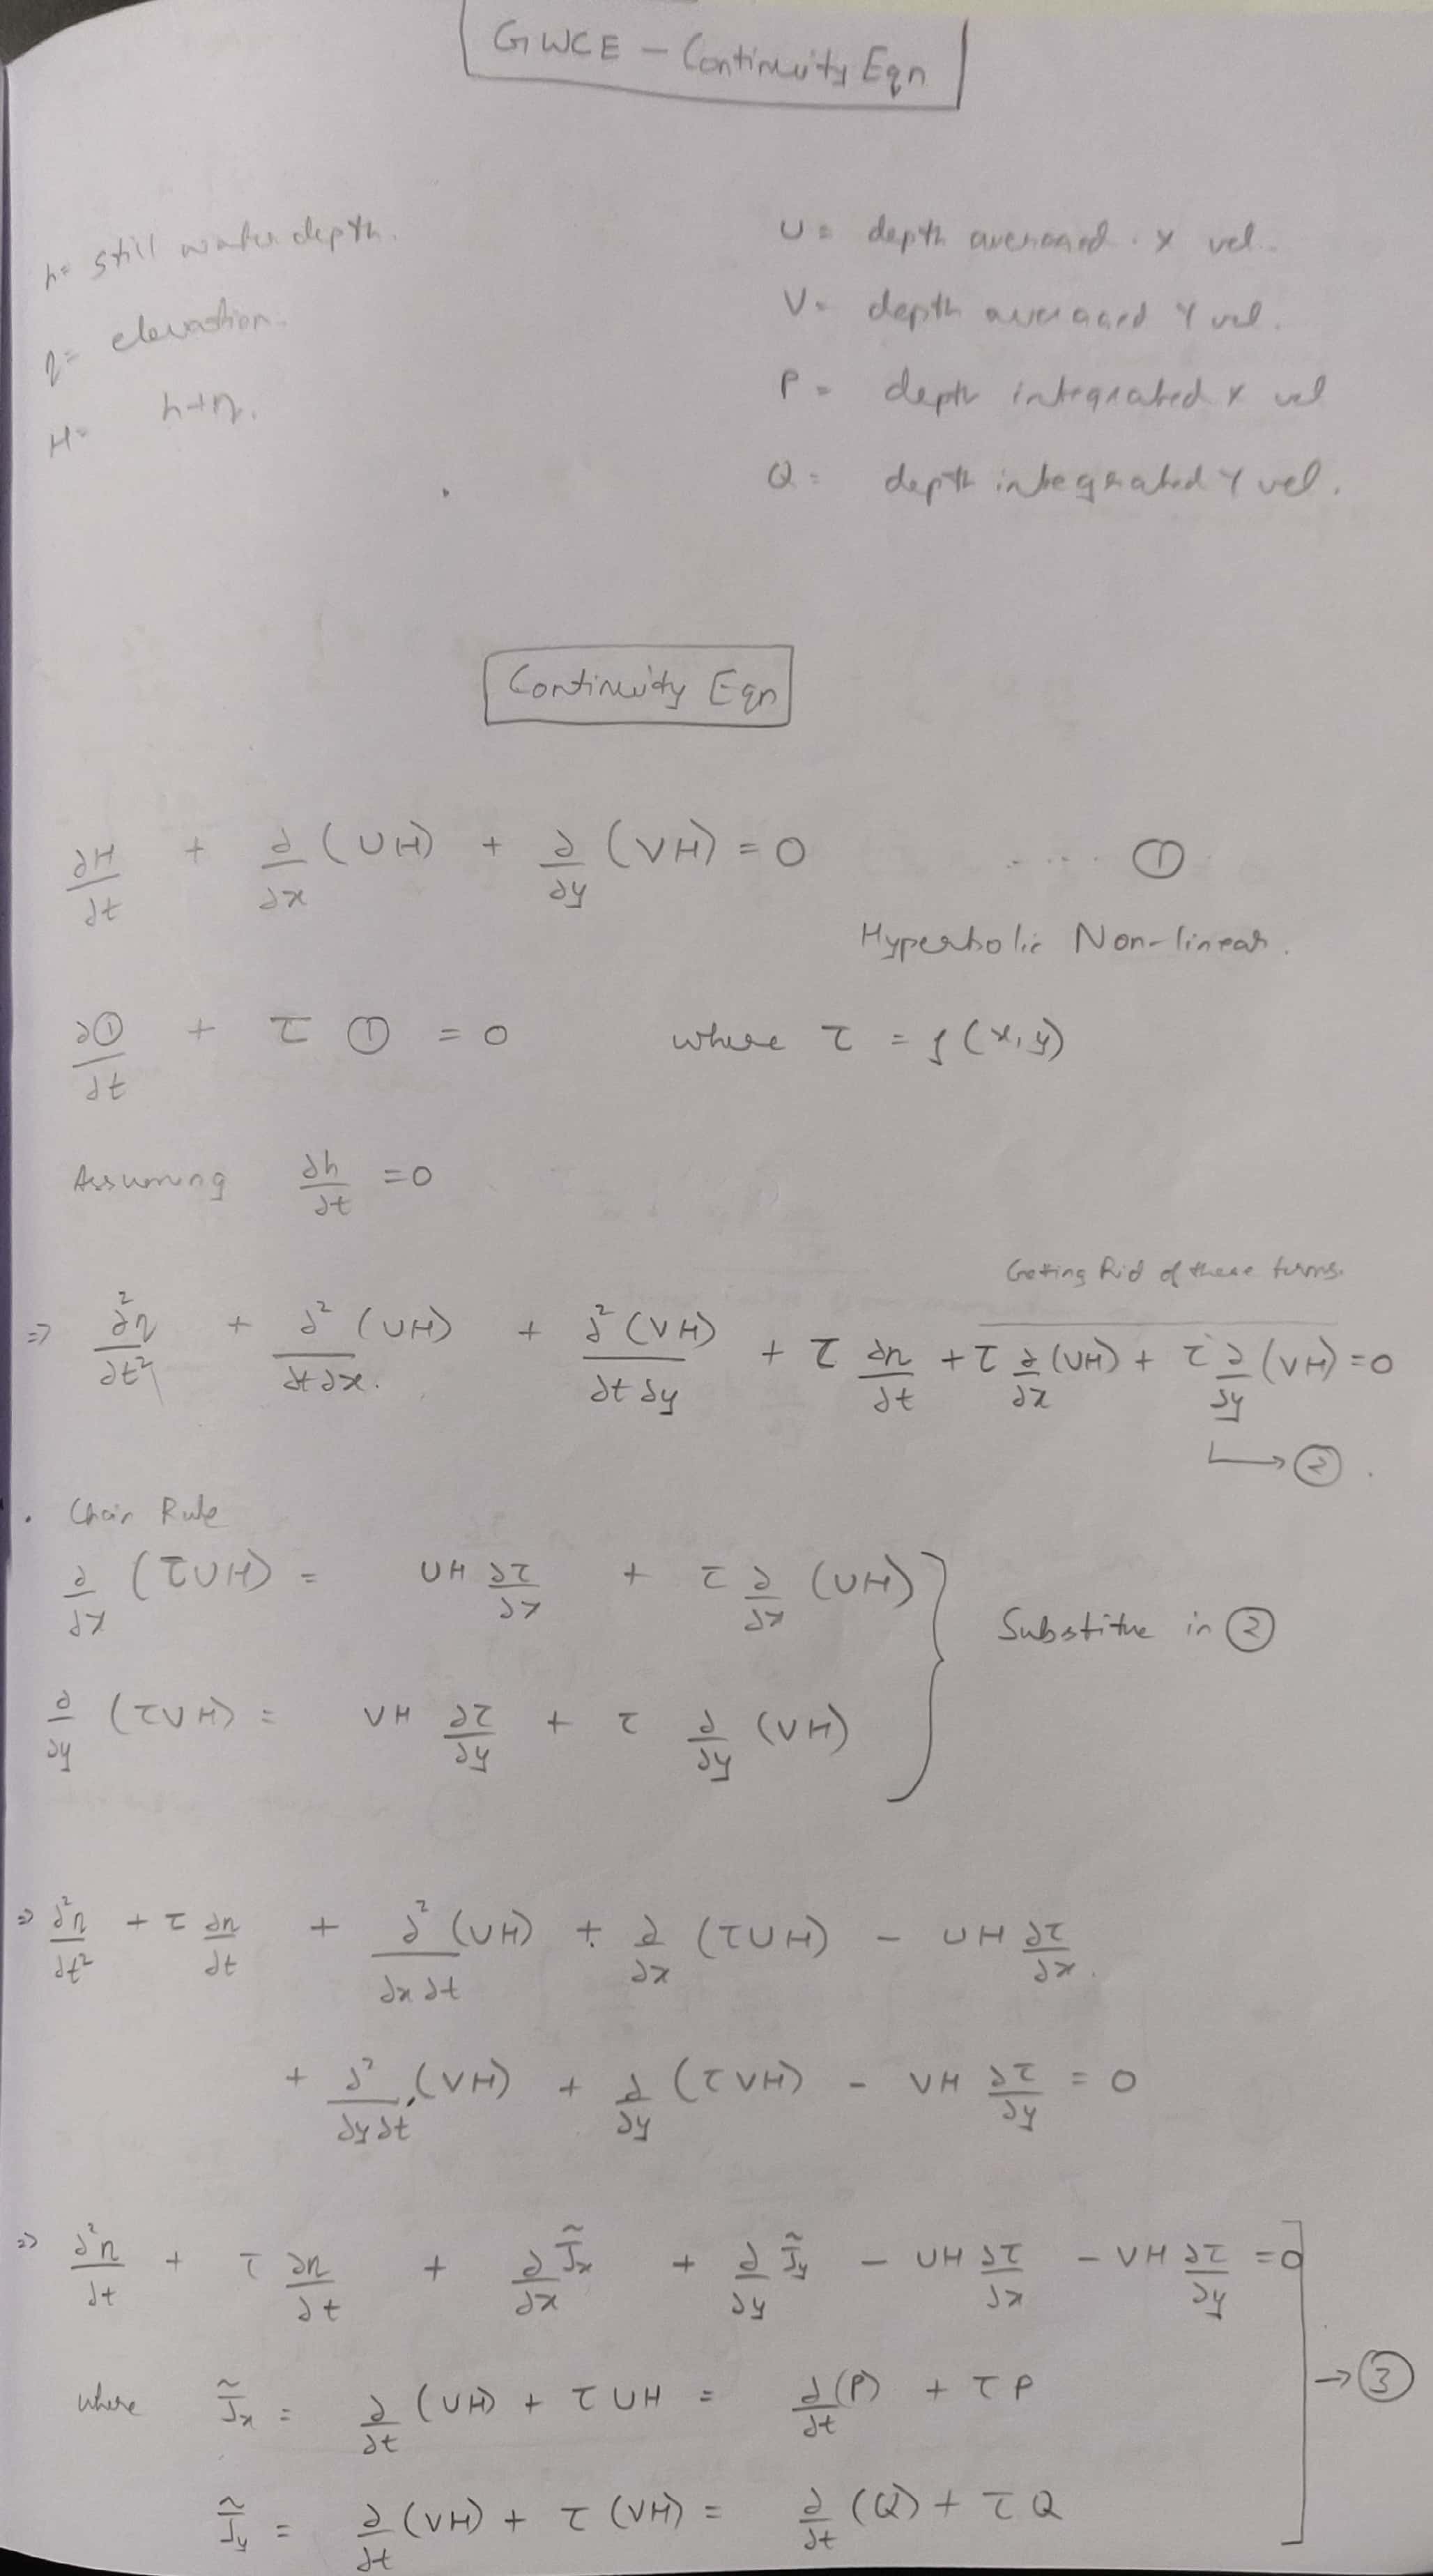 GWCE – Continuity Eqn
h = still water depth.
η = elevation.
H = h+η.
U = depth averaged x vel.
V = depth averaged Y vel.
P = depth integrated x vel
Q = depth integrated Y vel.
Continuity Eqn
∂H/∂t + ∂/∂x (UH) + ∂/∂y (VH) = 0 .... ①
Hyperbolic Non-linear.
∂①/∂t + τ ① = 0 where τ = f(x,y)
Assuming ∂h/∂t = 0
Getting Rid of these terms.
⇒ ∂²η/∂t² + ∂²(UH)/∂t∂x. + ∂²(VH)/∂t∂y + τ ∂η/∂t + τ ∂/∂x (UH) + τ ∂/∂y (VH) = 0
↳ ②.
. Chain Rule
∂/∂x (τUH) = UH ∂τ/∂x + τ ∂/∂x (UH)
Substitue in ②
∂/∂y (τVH) = VH ∂τ/∂y + τ ∂/∂y (VH)
⇒ ∂²η/∂t² + τ ∂η/∂t + ∂²(UH)/∂x∂t + ∂/∂x (τUH) – UH ∂τ/∂x.
+ ∂²/∂y∂t (VH) + ∂/∂y (τVH) – VH ∂τ/∂y = 0
⇒ ∂²η/∂t + τ ∂η/∂t + ∂/∂x J̃x + ∂/∂y J̃y – UH ∂τ/∂x – VH ∂τ/∂y = 0
where J̃x = ∂/∂t (UH) + τUH = ∂(P)/∂t + τP → ③
J̃y = ∂/∂t (VH) + τ(VH) = ∂/∂t (Q) + τQ